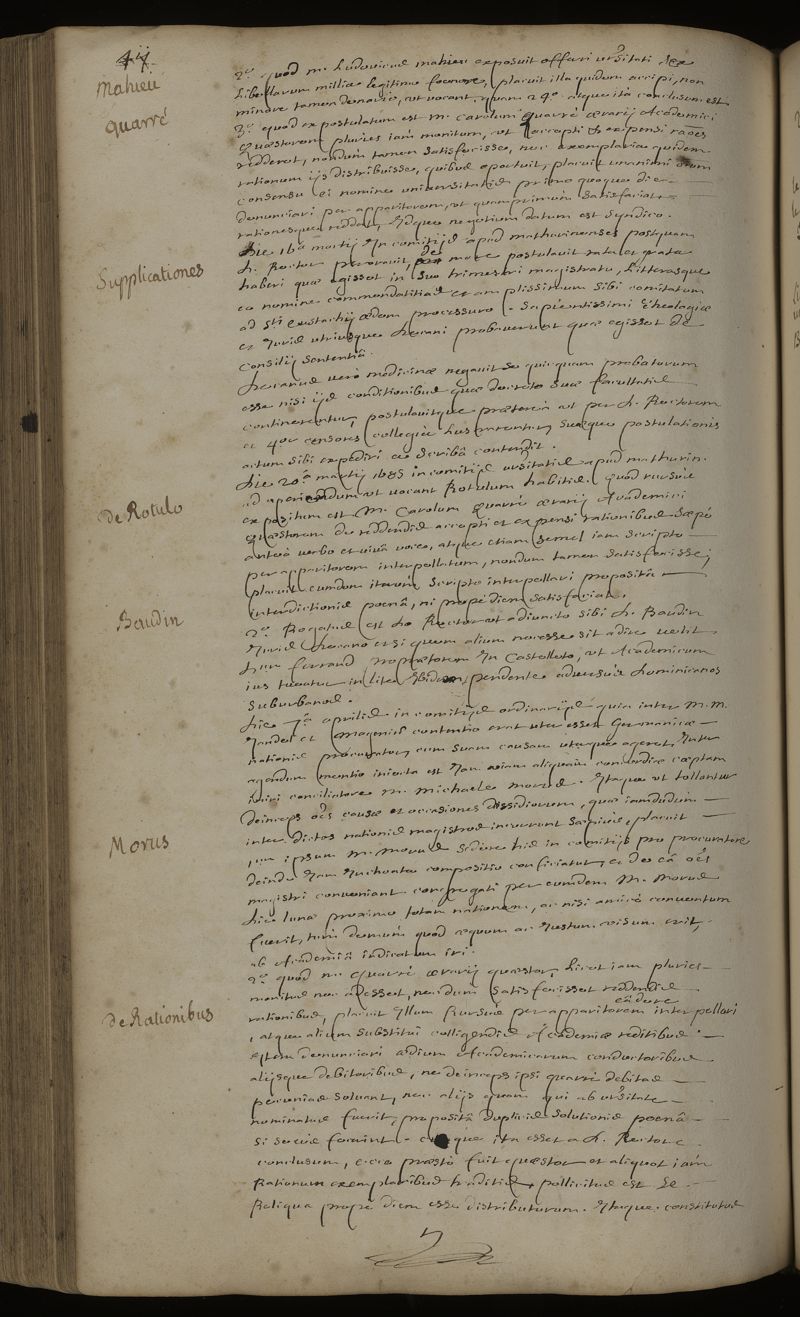 47
Mahieu
Quarré
2.º quod m. Ludovicus mahieu exposuit offerri vrsitati sex
libellarum millia legitimo foenore, placuit illa quidem accipi, non
minore tamen denario, ut vocant, quam 24º. atque ita conclusum est
3.º quod expostulatum est m. Carolum quarré ærarij Academici
Quæstorem pluries iam monitum, ut accepti et expensi raões
redderet, nondum tamen satisfecisse, nec exemplaria quidem
rationum ijs distribuisse, quibus oportuit, placuit unanimi oium
consensu ei nomine universitatis primo quoque die
denunciari per apparitorem, ut quamprimum satisfaciat
rationesque reddat, Idque negotium datum est syndico.
Supplicationes
Die 16ª martij In comitijs apud mathurinenses postquam
D. Rector peroravit, de more postulavit rata et grata
haberi quæ egisset in suo trimestri magistratu, litterasque
eo nomine commendatitias et amplissimum sibi comitatum
ad Sti Eustachij ædem processuro. Sapientissimi Theologiæ
et Juris utriusque Decani probaverunt quæ egisset de
consilij sententiâ.
Decanus vero medicinæ negavit se quicquam probaturum
esse nisi ijs conditionibus quæ decreto suæ facultatis
continerentur, postulavitque præterea ut per D. Rectorem
et 4or censores collegia lustrarentur, suæque postulationis
actum sibi expediri a scribâ contendit.
De Rotulo
Die 20ª martij 1685 in comitijs vrsitatis apud mathurin.
ad aperiendum ut vocant Rotulum habitis. quod rursus
expositum est M. Carolum Quarré ærarij Academici
Quæstorem de reddendis accepti et expensi rationibus sæpè
anteà verbo et vivâ voce, atque etiam semel iam scripto
per apparitorem interpellatum, nondum tamen satisfecisse;
placuit eumdem iterum scripto interpellari propositâ
interdictionis poenâ, ni propediem satisfaciat.
Baudin
2º. Rogatus est D. Rector ut adiuncto sibi D. Baudin
Juris Decano et si quem alium necesse sit adire velit
Dum ferrand propraetorem In Castelleto, ut Academicum
ius tueatur in lite Ibidem pendente adversus Dominicanos
suburbanos.
Die 7ª aprilis in comitijs ordinarijs quia inter M.M.
Jandos et Magenis contentio erat uter esset Germanicæ
nationis procurator, cum suam causam uterque ageret, Inter
agendum mentio iniecta est Jam viam aliquam concordiæ coeptam
iniri conciliatore M. Michaele morus. Itaque ut tollantur
deinceps oẽs causæ et occasiones dissidiorum, quæ iamdudum
inter dictos nationis magistros incurrunt sæpius, placuit
Morus
ipsum M. Morus sedere hic in comitijs pro procuratore
deinde Jam Inchoata compositio conficiatur, et deo câ oẽs
magistri conveniant congregati per eumdem M. Morus
die lunæ proximo totam nationem, ac nisi amicè conventum
fuerit, tum demum quod æquum ac Justum visum erit,
ab Academiâ iudicatum iri.
2º. quod m. Quarré ærarij quæstor, licet iam pluries
monitus nec adesset, necdum satisfecisset reddendis
De Rationibus
rationibus, placuit Illum Rursus per apparitorem eadere interpellari
, atque alium substitui colligendis Academiæ reditibus.
Item denunciari ædium Academicarum conductoribus
alijsque debitoribus, ne deinceps ipsi quarré debitas
pecunias solvant, nec alijs quam qui ab vrsitate
nominatus fuerit, propositâ duplicis solutionis poenâ
si secus fecerint. cumque ita esset a D. Rectore
conclusum, ecce præsto fuit quæstor et aliquot iam
Rationum exemplaribus traditis, pollicitus est se
Reliqua propè diem esse distributurum. Itaque constitutus